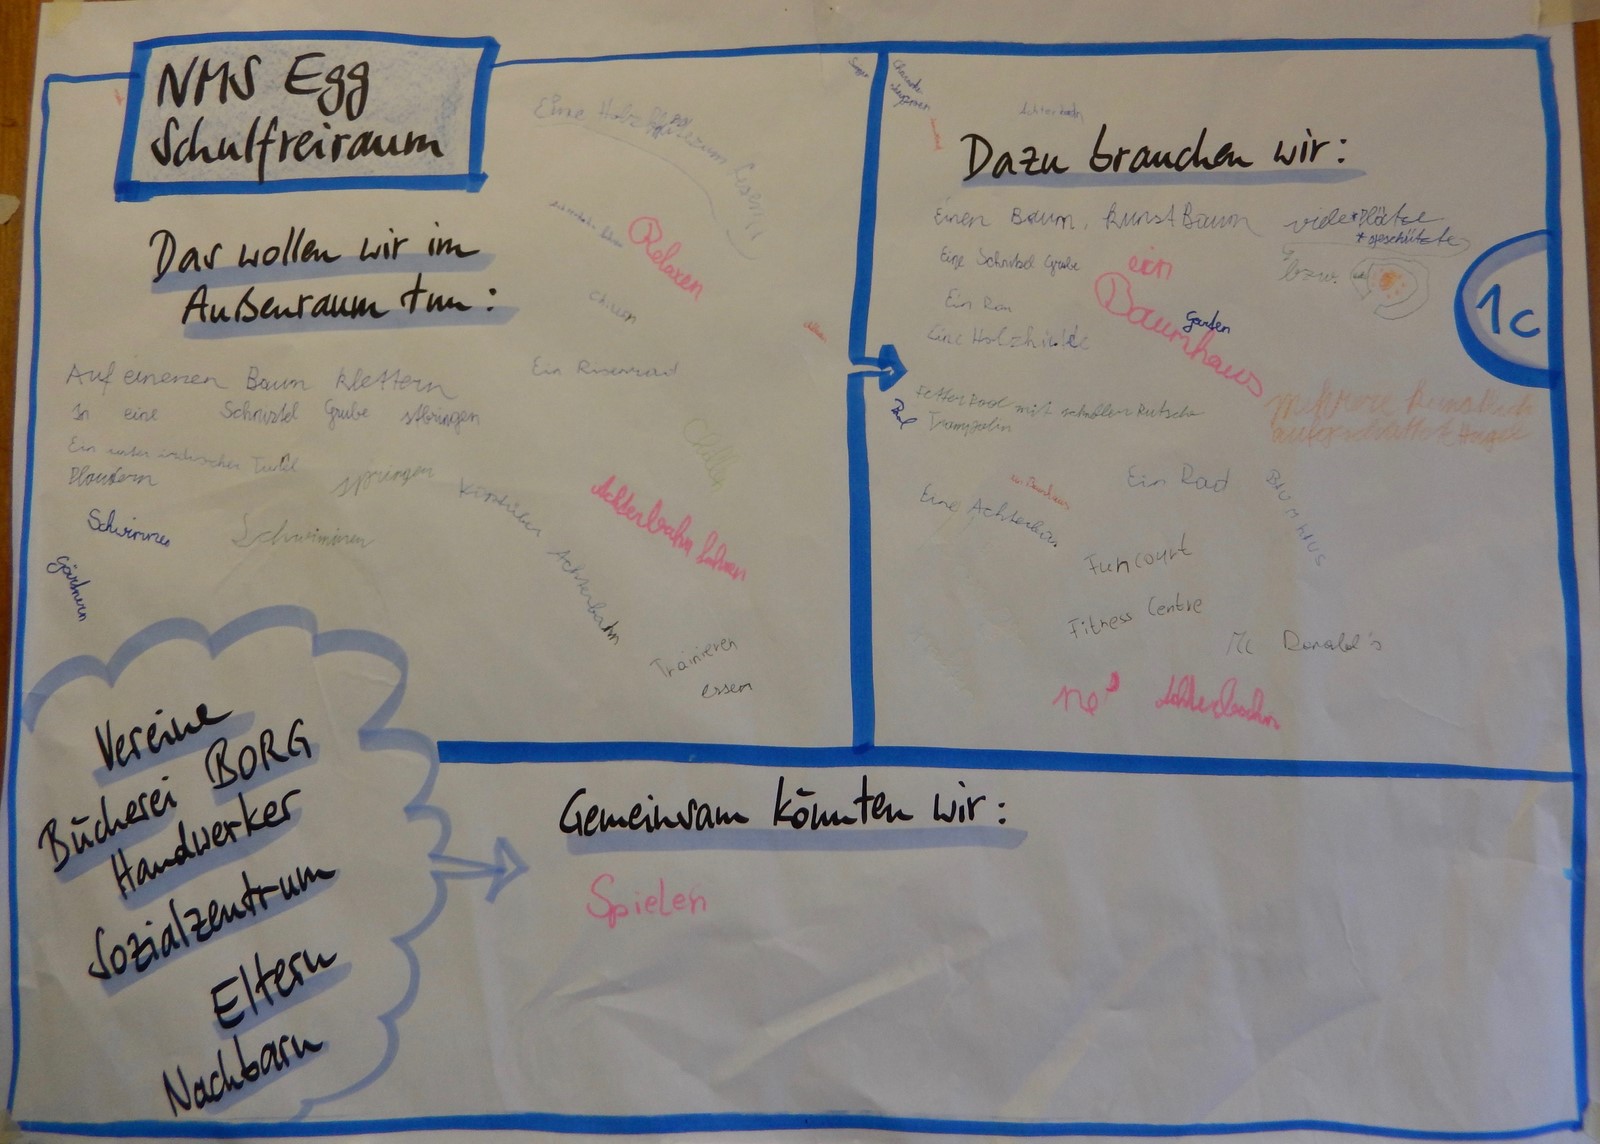 NMS Egg
Schulfreiraum
Das wollen wir im
Außenraum tun:
Eine Holz zum
Relaxen
Ein Risenrad
Auf einenen Baum klettern
In eine Schnitzel Grube
Ein Tunel
Plaudern
springen
Schwimmen
Schwimmen
Gärtnern
Chillen
Achterbahn fahren
Achterbahn
Trainieren
essen
Dazu brauchen wir:
Achterbahn
Einen Baum, KunstBaum
viele Plätze
*geschützte
bzw.
Eine Schnitzel Grube
ein
Baumhaus
Garten
Eine Holzhütte
1c
FetterPool mit schneller Rutsche
Trampolin
Pool
Mehrere künstlich
aufgeschüttet Hügel
Ein Rad
Eine Achterban
BAUMHAUS
Funcourt
Fitness Centre
Mc Donald's
ne Achterbahn
Vereine
Bücherei BORG
Handwerker
Sozialzentrum
Eltern
Nachbarn
Gemeinsam könnten wir:
Spielen